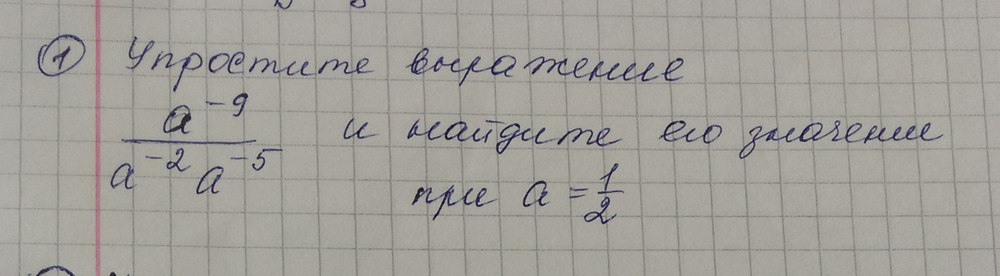 ① Упростите выражение
a⁻⁹ / a⁻² a⁻⁵ и найдите его значение
при a = 1/2